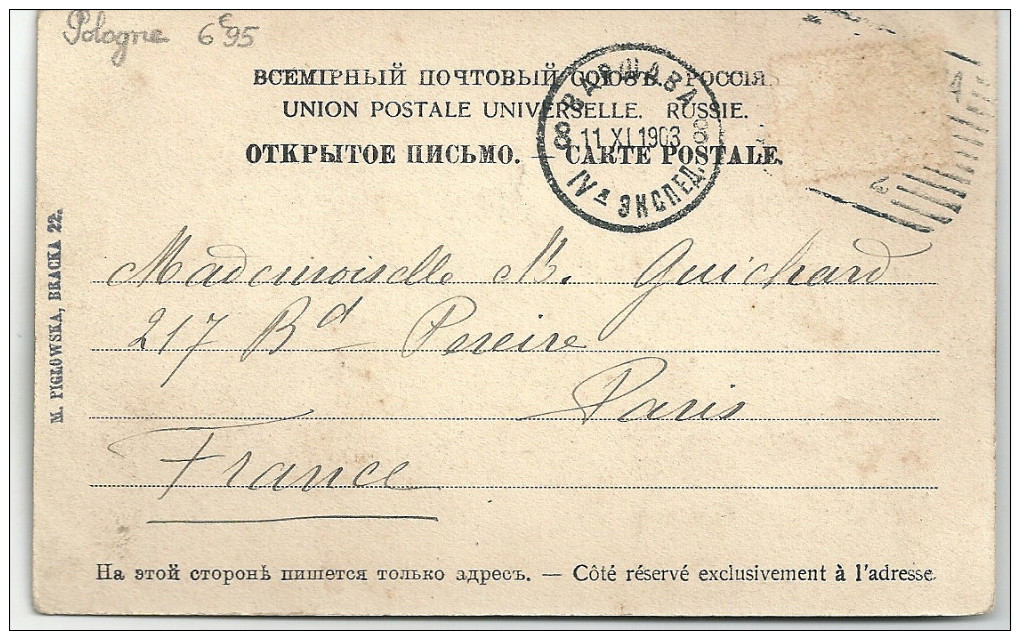 Pologne 6€95
ВСЕМІРНЫЙ ПОЧТОВЫЙ СОЮЗЪ. РОССІЯ.
UNION POSTALE UNIVERSELLE. RUSSIE.
ОТКРЫТОЕ ПИСЬМО. — CARTE POSTALE.
ВАРШАВА
8 11 XI.1903 8
IVя ЭКСПЕД.
M. PIGŁOWSKA, BRACKA 22.
Mademoiselle M. Guichard
217 Bd Pereire
Paris
France
На этой сторонѣ пишется только адресъ. — Côté réservé exclusivement à l'adresse.